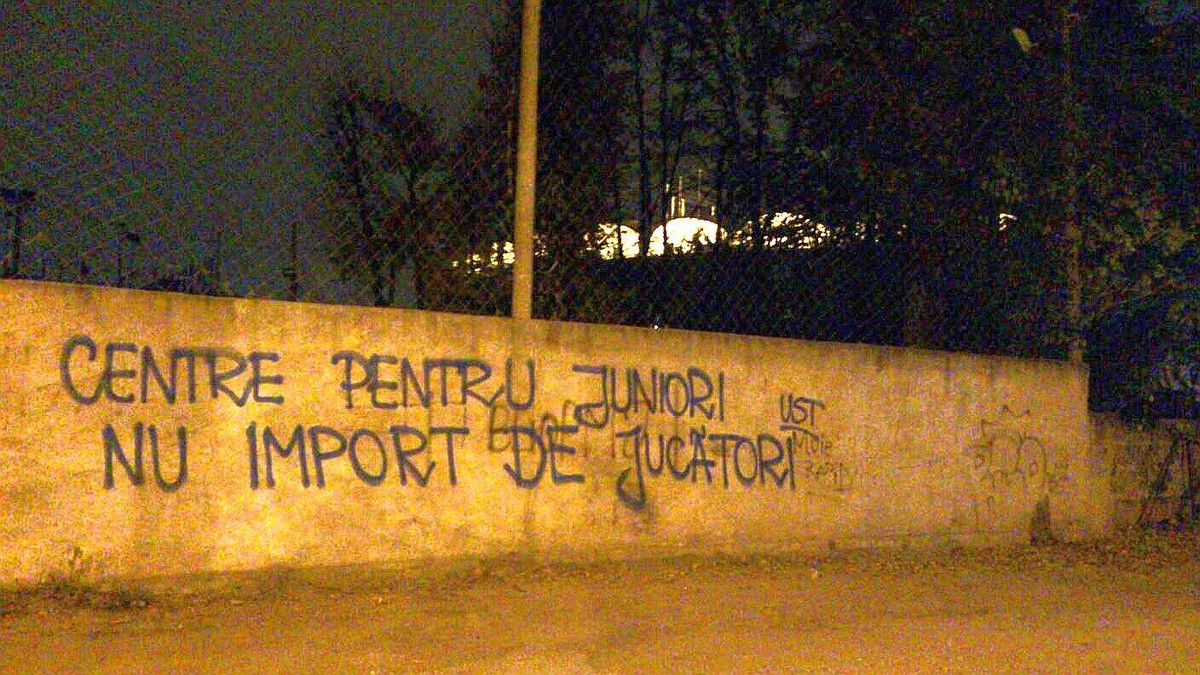 CENTRE PENTRU JUNIORI
NU IMPORT DE JUCĂTORI
UST